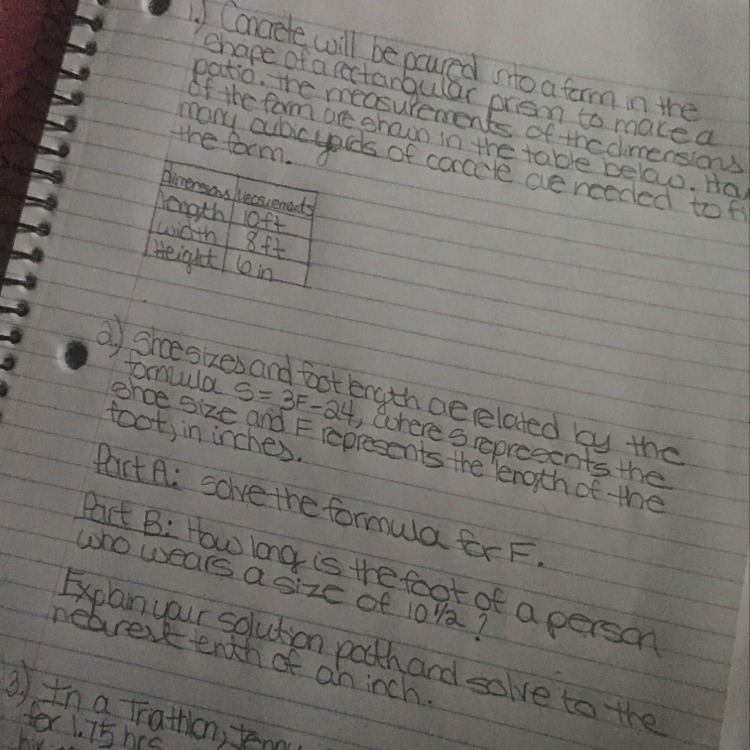 1.) Concrete will be poured into a form in the
shape of a rectangular prism to make a
patio. The measurements of the dimensions
of the form are shown in the table below. How
many cubic yards of concrete are needed to fi
the form.
Dimensions Measurements
length 10ft
width 8ft
Height 6in
2.) Shoe sizes and foot length are related by the
formula S=3F-24, where S represents the
shoe size and F represents the length of the
foot, in inches.
Part A: solve the formula for F.
Part B: How long is the foot of a person
who wears a size of 10 1/2?
Explain your solution path and solve to the
nearest tenth of an inch.
3.) In a Triathlon,
for 1.75 hrs